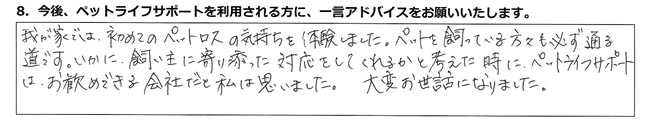 8. 今後、ペットライフサポートを利用される方に、一言アドバイスをお願いいたします。
我が家では、初めてのペットロスの気持ちを体験しました。ペットを飼っている方々も必ず通る
道です。いかに、飼い主に寄り添った対応をしてくれるかと考えた時に、ペットライフサポート
は、お歓めできる会社だと私は思いました。 大変お世話になりました。